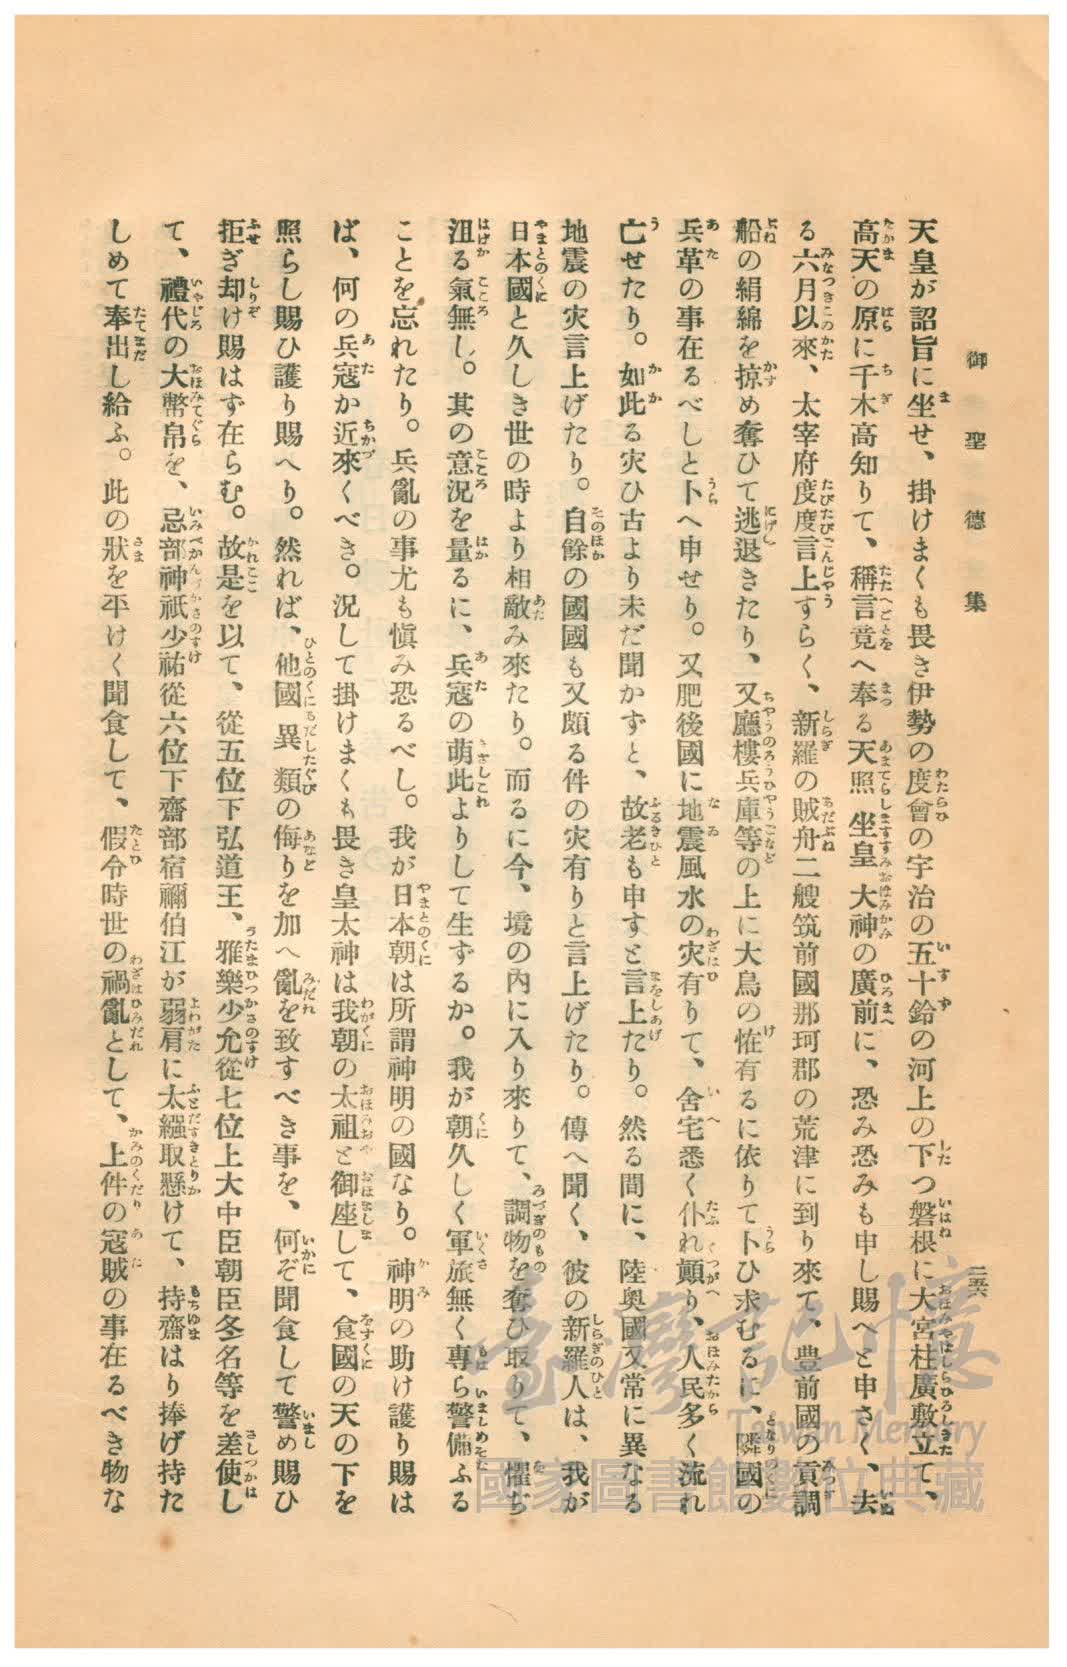 御聖德集
二三六
天皇が詔旨に坐せ、掛けまくも畏き伊勢の度會の宇治の五十鈴の河上の下つ磐根に大宮柱廣敷立て、
高天の原に千木高知りて、稱言竟へ奉る天照坐皇大神の廣前に、恐み恐みも申し賜へと申さく、去
る六月以來、太宰府度度言上すらく、新羅の賊舟二艘筑前國那珂郡の荒津に到り來て、豊前國の貢調
船の絹綿を掠め奪ひて逃退きたり、又廳樓兵庫等の上に大鳥の恠有るに依りて卜ひ求むるに、隣國の
兵革の事在るべしと卜へ申せり。又肥後國に地震風水の灾有りて、舍宅悉く仆れ顚り、人民多く流れ
亡せたり。如此る灾ひ古より未だ聞かずと、故老も申すと言上たり。然る間に、陸奥國又常に異なる
地震の灾言上げたり。自餘の國國も又頗る件の灾有りと言上げたり。傳へ聞く、彼の新羅人は、我が
日本國と久しき世の時より相敵み來たり。而るに今、境の內に入り來りて、調物を奪ひ取りて、懼ぢ
沮る氣無し。其の意況を量るに、兵寇の萌此よりして生ずるか。我が朝久しく軍旅無く專ら警備ふる
ことを忘れたり。兵亂の事尤も愼み恐るべし。我が日本朝は所謂神明の國なり。神明の助け護り賜は
ば、何の兵寇か近來くべき。況して掛けまくも畏き皇太神は我朝の太祖と御座して、食國の天の下を
照らし賜ひ護り賜へり。然れば、他國異類の侮りを加へ亂を致すべき事を、何ぞ聞食して警め賜ひ
拒ぎ却け賜はず在らむ。故是を以て、從五位下弘道王、雅樂少允從七位上大中臣朝臣冬名等を差使し
て、禮代の大幣帛を、忌部神祇少祐從六位下齋部宿禰伯江が弱肩に太繦取懸けて、持齋はり捧げ持た
しめて奉出し給ふ。此の狀を平けく聞食して、假令時世の禍亂として、上件の寇賊の事在るべき物な
臺灣記憶
Taiwan Memory
國家圖書館數位典藏